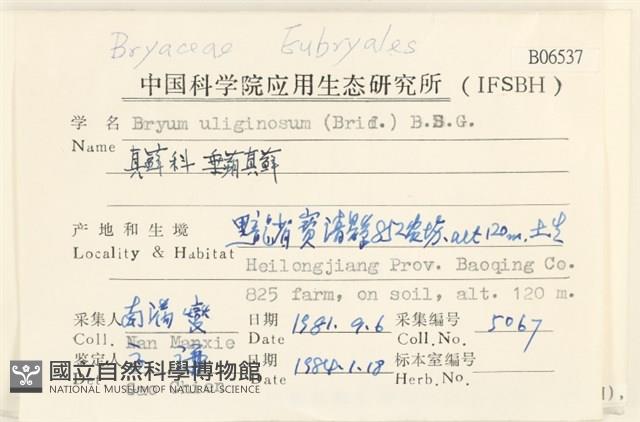 Bryaceae Eubryales
B06537
中国科学院应用生态研究所 (IFSBH)
学名 Bryum uliginosum (Brid.) B.S.G.
Name 真蘚科 垂蒴真蘚
产地和生境 黑龍江省寶清縣852农场.alt 120m.土生
Locality & Habitat Heilongjiang Prov. Baoqing Co.
825 farm, on soil, alt. 120 m.
采集人 南满 日期 1981.9.6 采集编号 5067
Coll. Nan Manxie Date Coll.No.
鉴定人 日期 1984.1.18 标本室编号
Det Date Herb.No.
國立自然科學博物館
NATIONAL MUSEUM OF NATURAL SCIENCE